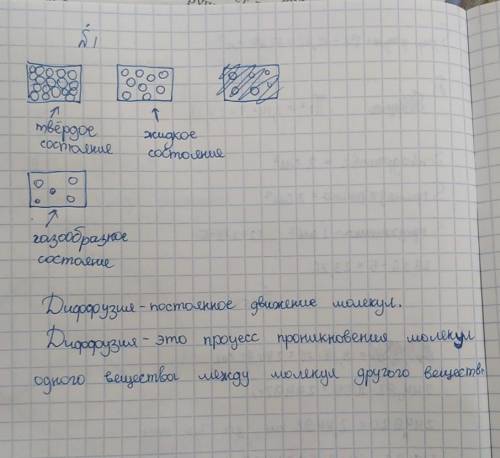 §1
твёрдое
состояние
жидкое
состояние
газообразное
состояние
Диффузия - постоянное движение молекул.
Диффузия - это процесс проникновения молекул
одного вещества между молекул другого веществ